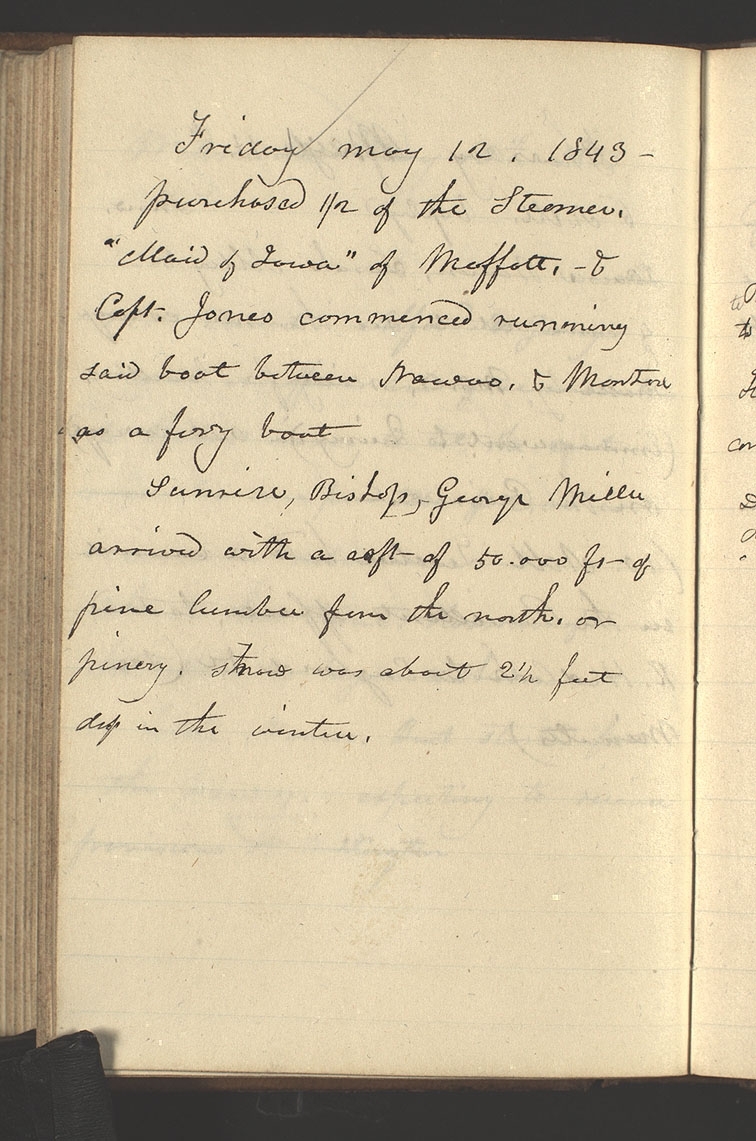 Friday may 12. 1843-
purchased 1/2 of the Steamer.
"Maid of Iowa" of Moffatt, - &
Capt. Jones commenced running
said boat between Nauvoo. & Montrose
as a ferry boat
Sunrise, Bishop, George Miller
arrived with a raft of 50.000 ft of
pine lumber from the north. or
pinery. Snow was about 2 1/2 feet
deep in the winter.